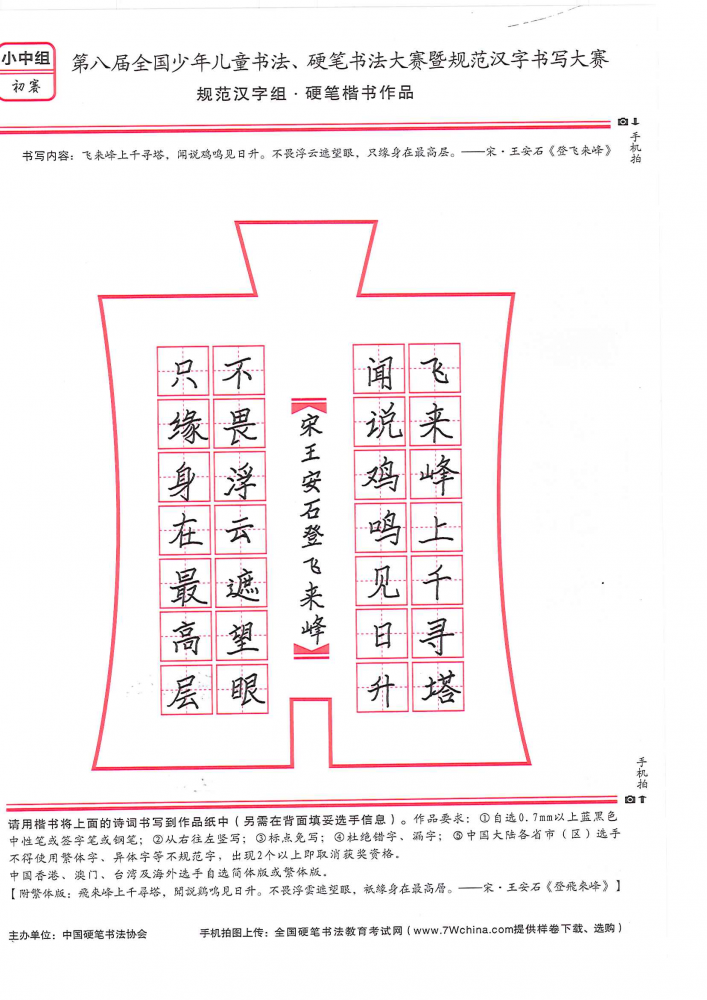 小中组
初赛
第八届全国少年儿童书法、硬笔书法大赛暨规范汉字书写大赛
规范汉字组·硬笔楷书作品
手机拍
书写内容：飞来峰上千寻塔，闻说鸡鸣见日升。不畏浮云遮望眼，只缘身在最高层。——宋·王安石《登飞来峰》
飞来峰上千寻塔
闻说鸡鸣见日升
宋王安石登飞来峰
不畏浮云遮望眼
只缘身在最高层
手机拍
请用楷书将上面的诗词书写到作品纸中（另需在背面填妥选手信息）。作品要求：①自选0.7mm以上蓝黑色
中性笔或签字笔或钢笔；②从右往左竖写；③标点免写；④杜绝错字、漏字；⑤中国大陆各省市（区）选手
不得使用繁体字、异体字等不规范字，出现2个以上即取消获奖资格。
中国香港、澳门、台湾及海外选手自选简体版或繁体版。
【附繁体版：飛來峰上千尋塔，聞説鷄鳴見日升。不畏浮雲遮望眼，祇緣身在最高層。——宋·王安石《登飛來峰》】
主办单位：中国硬笔书法协会
手机拍图上传：全国硬笔书法教育考试网（www.7Wchina.com提供样卷下载、选购）